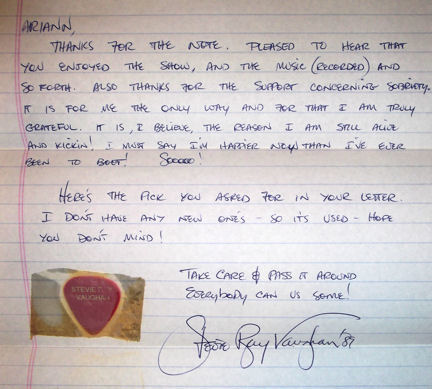 ARIANN,
THANKS FOR THE NOTE. PLEASED TO HEAR THAT
YOU ENJOYED THE SHOW, AND THE MUSIC (RECORDED) AND
SO FORTH. ALSO THANKS FOR THE SUPPORT CONCERNING SOBRIETY.
IT IS FOR ME THE ONLY WAY AND FOR THAT I AM TRULY
GRATEFUL. IT IS, I BELIEVE, THE REASON I AM STILL ALIVE
AND KICKIN! I MUST SAY I'M HAPPIER NOW THAN I'VE EVER
BEEN TO BOOT! SOOOOO!
HERE'S THE PICK YOU ASKED FOR IN YOUR LETTER.
I DON'T HAVE ANY NEW ONE'S - SO IT'S USED - HOPE
YOU DON'T MIND!
STEVIE
VAUGHAN
TAKE CARE & PASS IT AROUND
EVERYBODY CAN US SOME!
Stevie Ray Vaughan '89